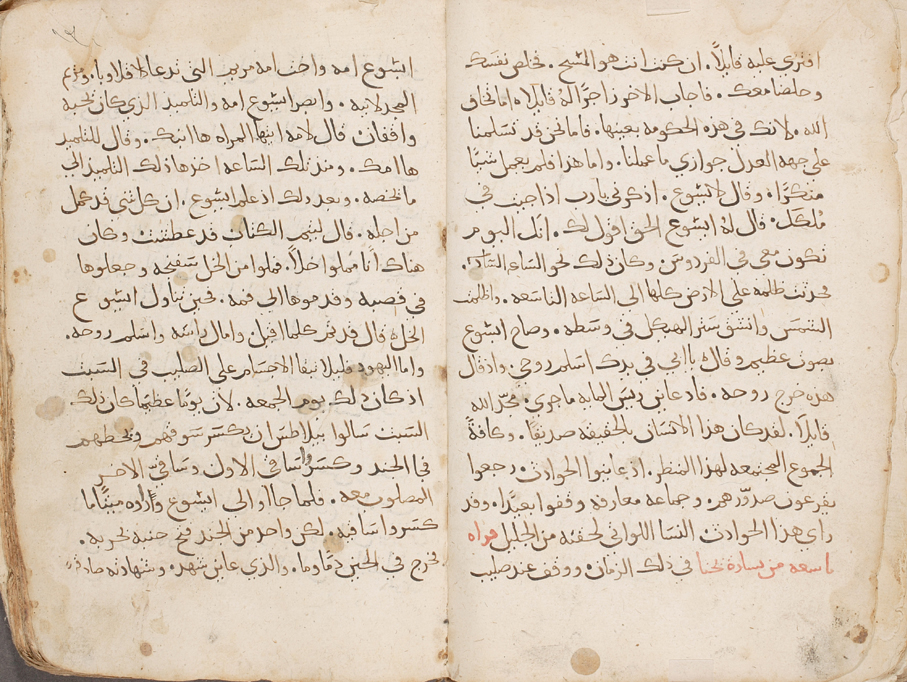 افترى عليه قايلاً. ان كنت انت هو المسيح. فخلص نفسك
وخلصنا معك. فاجاب الاخر زاجرًا له قايلا ه اما تخاف
الله. لانك في هذه الحكومه بعينها. فاما نحن فد تسلمنا
على جهه العدل جوازي ما عملنا. واما هذا فلم يعمل شيًا
منكرًا. وقال لايشوع. اذكرني يارب اذا جيت في
مُلكك. قال له ايشوع الحق اقول لك. انك اليوم
تكون معي في الفردوس. وكان ذلك نحو الساعه السادسه.
فحدثت ظلمه على الارض كلها الى الساعه التاسعه. واظلمت
الشمس وانشق ستر الهيكل في وسطه. وصاح ايشوع
بصوت عظيم وقال ه ياابي في يدك اسلم روحي. واذ قال
هذه خرج روحه. فاذ عاين ريس المايه ما جرى مجّد الله
قايلاً. لقد كان هذا الانسان بالحقيقه صديقًا. وكافة
الجموع المجتمعه لهذا المنظر. اذ عاينوا الحوادث. رجعوا
يقرعون صدورهم. وجماعه معارفه وقفوا بعيدًا. وقد
راى هذا الحوادث النسا اللواتي لحقنه من الجليل قراه
تاسعه من بشارة يحنا في ذلك الزمان. ووقف عند صليب
ايشوع امه واخت امه مريم التي تدعا لاقلاوبا. ومريم
المجدلانيه. وابصر ايشوع امه والتلميذ الذي كان يحبه
واقفان قال لامه ايتها المراه ها ابنك. وقال للتلميذ
ها امك. ومنذ تلك الساعه اخذها ذلك التلميذ الى
ما يخصه. وبعد ذلك اذ علم ايشوع. ان كل شي قد كمل
من اجله. قال ليتم الكتاب قد عطشت وكان
هناك انًا مملوا خلاً. فملوا من الخل سفنجه وجعلوها
في قصبه وقدموها الى فمه. فحين تناول ايشوع
الخل ه قال قد تم كلما اقبل وامال راسه واسلم روحه.
واما اليهود فليلا تبقا الاجسام على الصليب في السبت
اذ كان ذلك يوم الجمعه. لان يومًا عظيمًا كان ذلك
السبت سالوا بيلاطس ان يكسر سوقهم ويحطهم
فجا الجند وكسروا ساقي الاول وساقي الاخر
المصلوب معه. فلما جااو الى ايشوع وراوه ميتًا ما
كسروا ساقيه. لكن واحد من الجند فتح جنبه بحربه.
فخرج في الحين دمًا وما. والذي عاين شهد. وشهادته صادقه